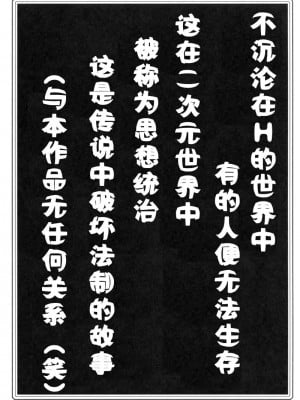 不沉沦在H的世界中
有的人便无法生存
这在二次元世界中
被称为思想统治
这是传说中破坏法制的故事
（与本作品无任何关系（笑）